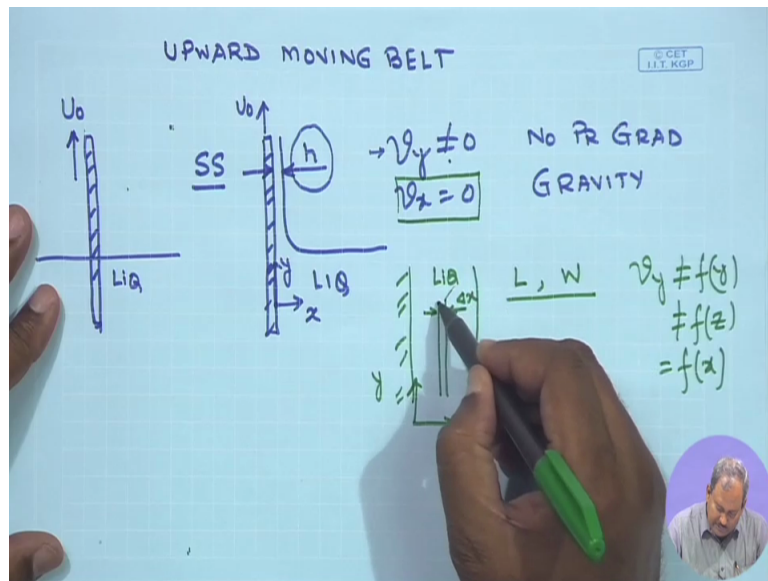 UPWARD MOVING BELT
© CET
I.I.T. KGP
U0
LiQ
U0
SS
h
y
LIQ
x
→ϑy ≠ 0
ϑx = 0
NO PR GRAD
GRAVITY
LiQ
Δx
y
L, W
ϑy ≠ f(y)
≠ f(z)
= f(x)